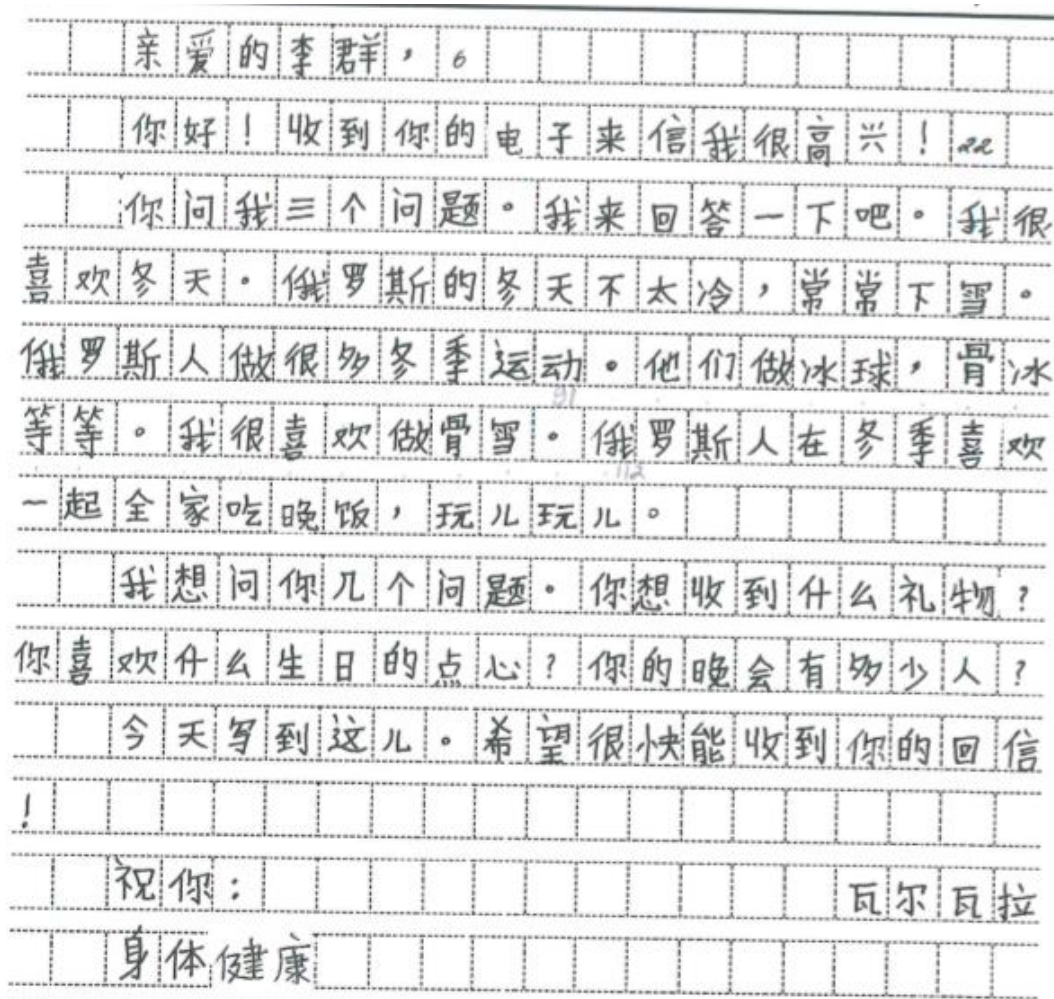 亲爱的李群，6
你好！收到你的电子来信我很高兴！22
你问我三个问题。我来回答一下吧。我很
喜欢冬天。俄罗斯的冬天不太冷，常常下雪。
俄罗斯人做很多冬季运动。他们做冰球，骨冰
97
等等。我很喜欢做骨雪。俄罗斯人在冬季喜欢
112
一起全家吃晚饭，玩儿玩儿。
我想问你几个问题。你想收到什么礼物？
你喜欢什么生日的点心？你的晚会有多少人？
今天写到这儿。希望很快能收到你的回信
！
祝你： 瓦尔瓦拉
身体健康